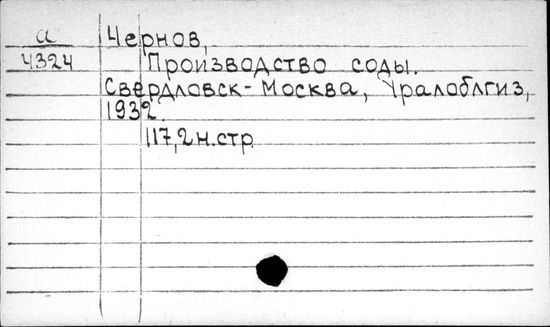 а
4324
Чернов,
Производство соды.
Свердловск-Москва, Уралоблгиз,
1932.
117,2н.стр.